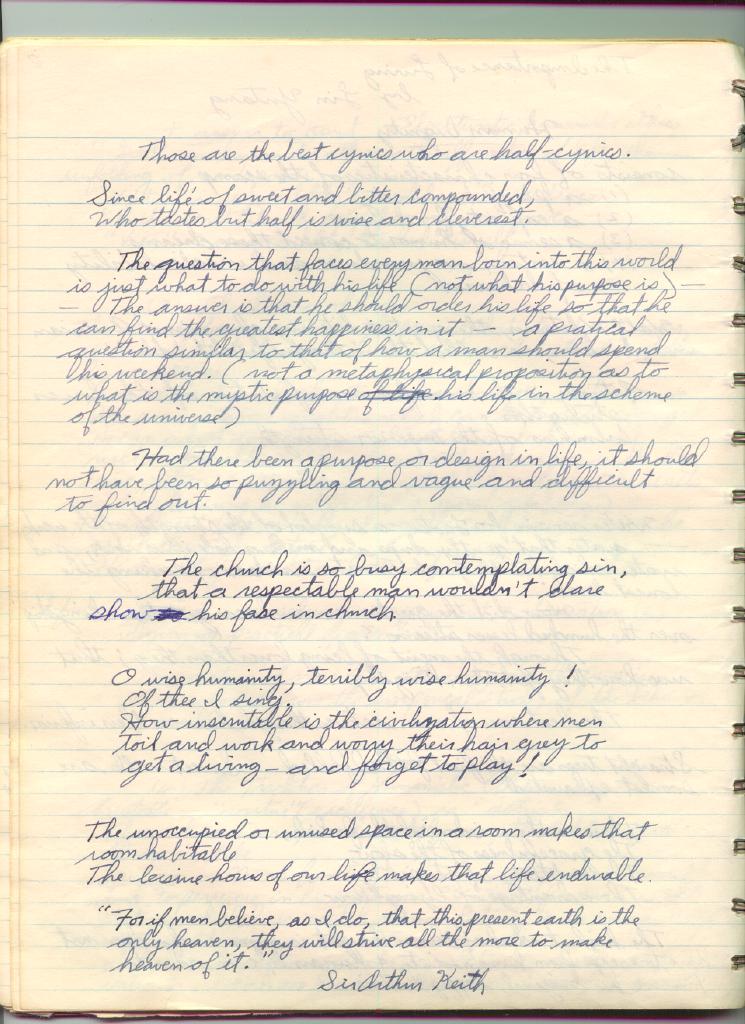 Those are the best cynics who are half-cynics.
Since life of sweet and bitter compounded,
Who tastes but half is wise and cleverest.
The question that faces every man born into this world
is just what to do with his life (not what his purpose is) —
— The answer is that he should order his life so that he
can find the greatest happiness in it — a pratical
question similar to that of how a man should spend
his weekend. (not a metaphysical proposition as to
what is the mystic purpose of life his life in the scheme
of the universe)
Had there been a purpose or design in life, it should
not have been so puzzyling and vague and difficult
to find out.
The church is so busy comtemplating sin,
that a respectable man wouldn't dare
show his fase in church.
O wise humanity, terribly wise humanity!
Of thee I sing.
How inscrutable is the civilization where men
toil and work and worry their hair grey to
get a living — and forget to play!
The unoccupied or unused space in a room makes that
room habitable
The leisure hours of our life makes that life endurable.
"For if men believe, as I do, that this present earth is the
only heaven, they will strive all the more to make
heaven of it."
Sir Arthur Keith